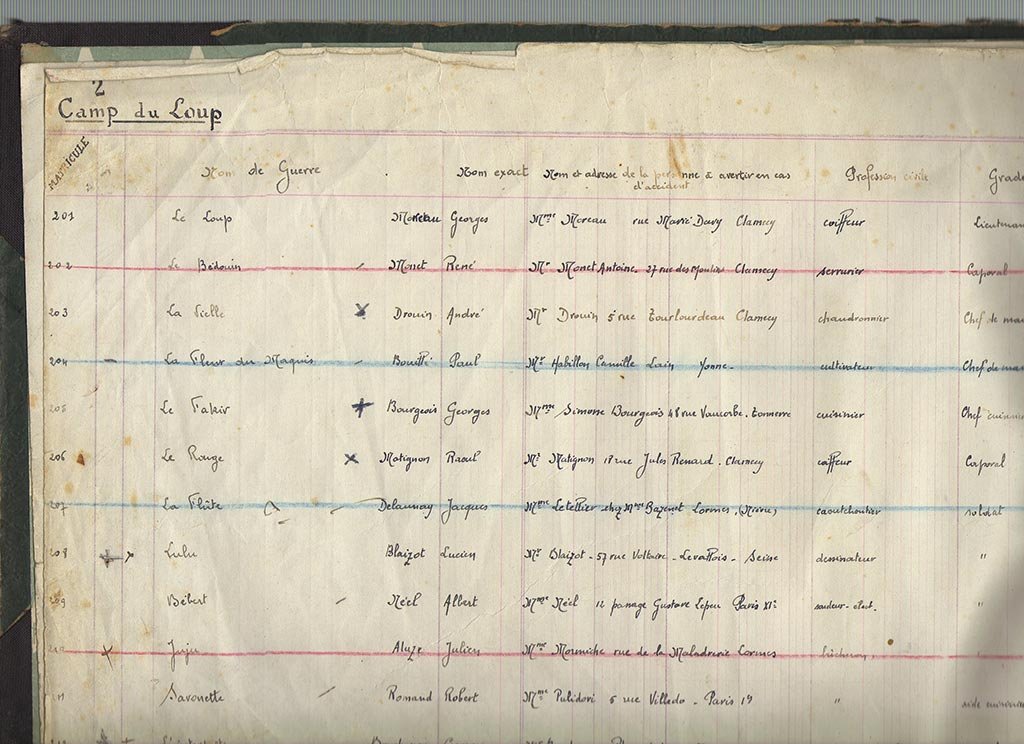 2
Camp du Loup
MATRICULE Nom de Guerre Nom exact Nom et adresse de la personne à avertir en cas d'accident Profession civile Grade
201 Le Loup Moreau Georges Mme Moreau rue Marié Davy Clamecy coiffeur Lieutenan
202 Le Bédouin Monet René Mr Monet Antoine. 27 rue des Moulins Clamecy serrurier Caporal
203 La Vielle Drouin André Mr Drouin 5 rue Clamecy chaudronnier Chef de
204 La Fleur du Maquis Paul Mr Habillon Camille Lain Yonne. cultivateur Chef de
205 Le Fakir Bourgeois Georges Mme Simone Bourgeois 48 rue Vaucorbe. Tonnerre cuisinier Chef
206 Le Rouge Matignon Raoul Mr Matignon 18 rue Jules Renard. Clamecy coiffeur Caporal
207 La Flûte Delaunay Jacques Mme Letellier chez Mme Bazenet Lormes. (Nièvre) caoutchoutier soldat
208 Lulu Blaizot Lucien Mr Blaizot - 57 rue Voltaire - Levallois - Seine dessinateur "
209 Bébert Néel Albert Mme Néel 12 passage Gustave Lepeu Paris XIe soudeur-élect. "
210 Juju Aluze Julien Mme rue de la Maladrerie Lormes bûcheron
211 Savonette Robert Mme Pulidori 5 rue Villedo - Paris 1er "